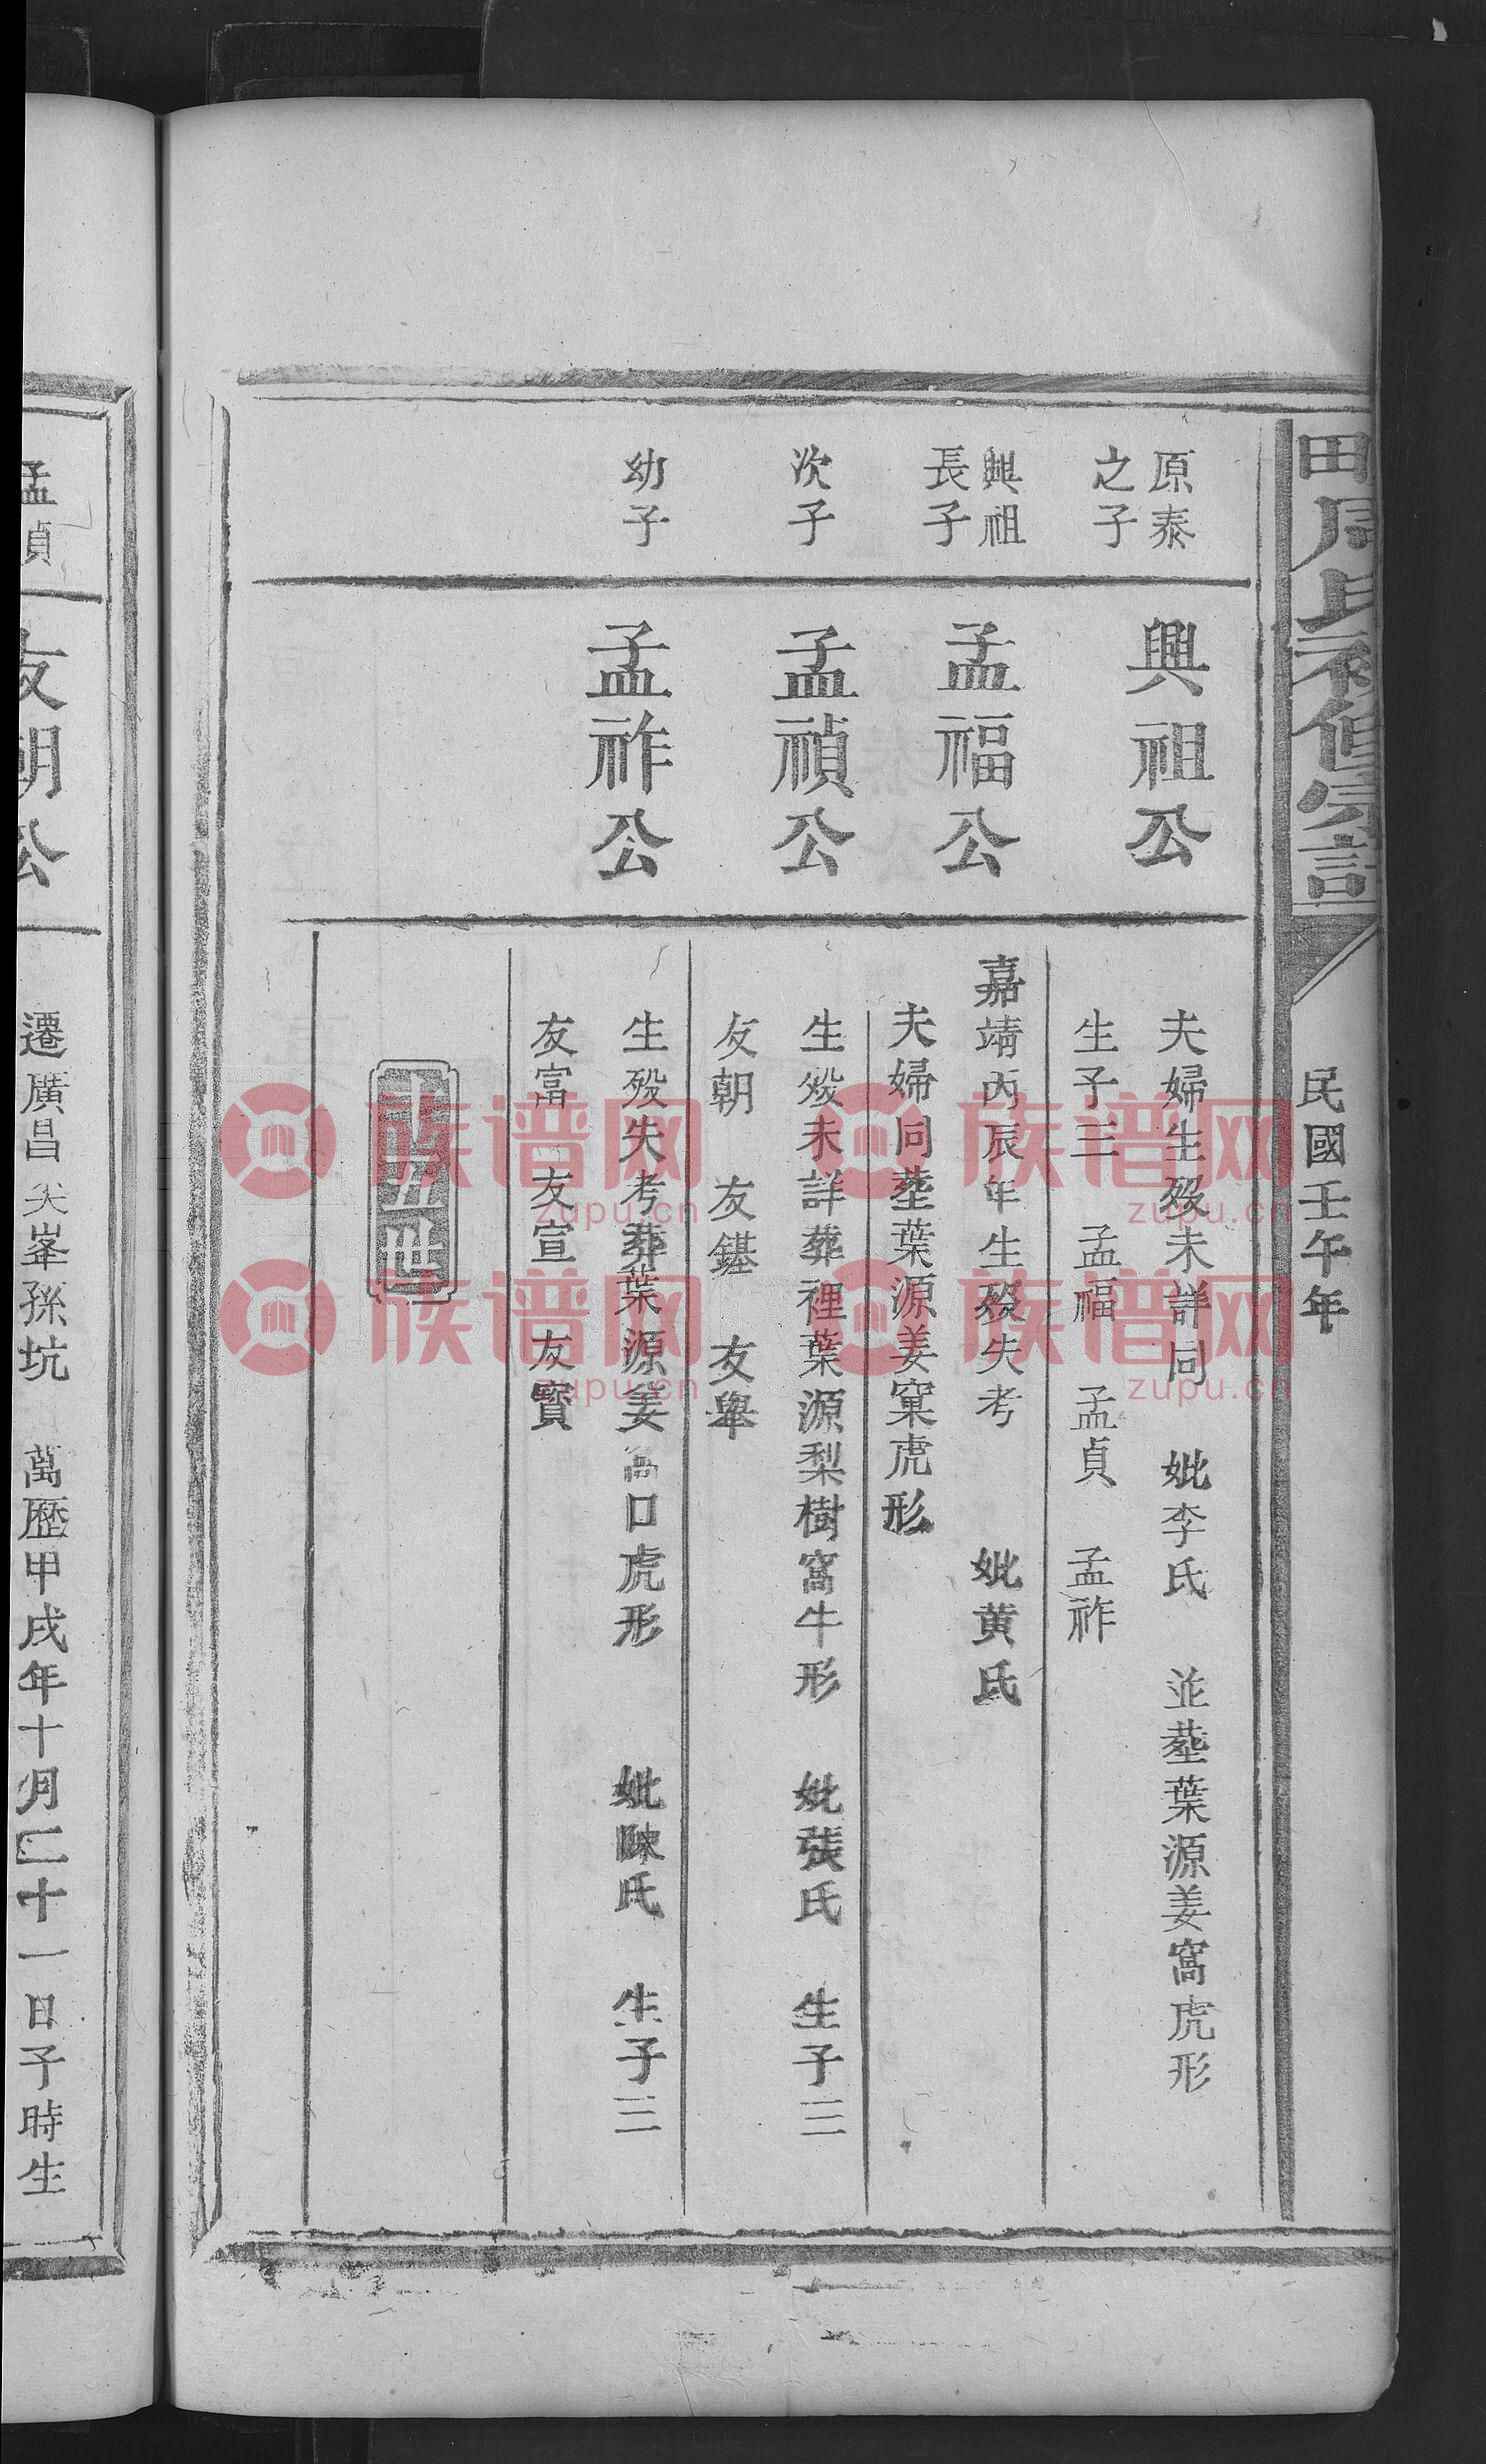 田周氏補修宗譜
民國壬午年
原泰
之子
興祖公
夫婦生歿未詳同 妣李氏 並塟葉源姜窩虎形
生子三 孟福 孟貞 孟祚
興祖
長子
孟福公
嘉靖丙辰年生歿失考 妣黃氏
夫婦同塟葉源姜窠虎形
次子
孟禎公
生歿未詳葬裡葉源梨樹窩牛形 妣張氏 生子三
友朝 友鍖 友舉
幼子
孟祚公
生歿失考葬葉源姜窩口虎形 妣陳氏 生子三
友富 友宣 友寳
十五世
孟貞
友朝公
遷廣昌尖峯孫坑 萬歷甲戌年十月二十一日子時生
族谱网
zupu.cn
族谱网
zupu.cn
族谱网
zupu.cn
族谱网
zupu.cn